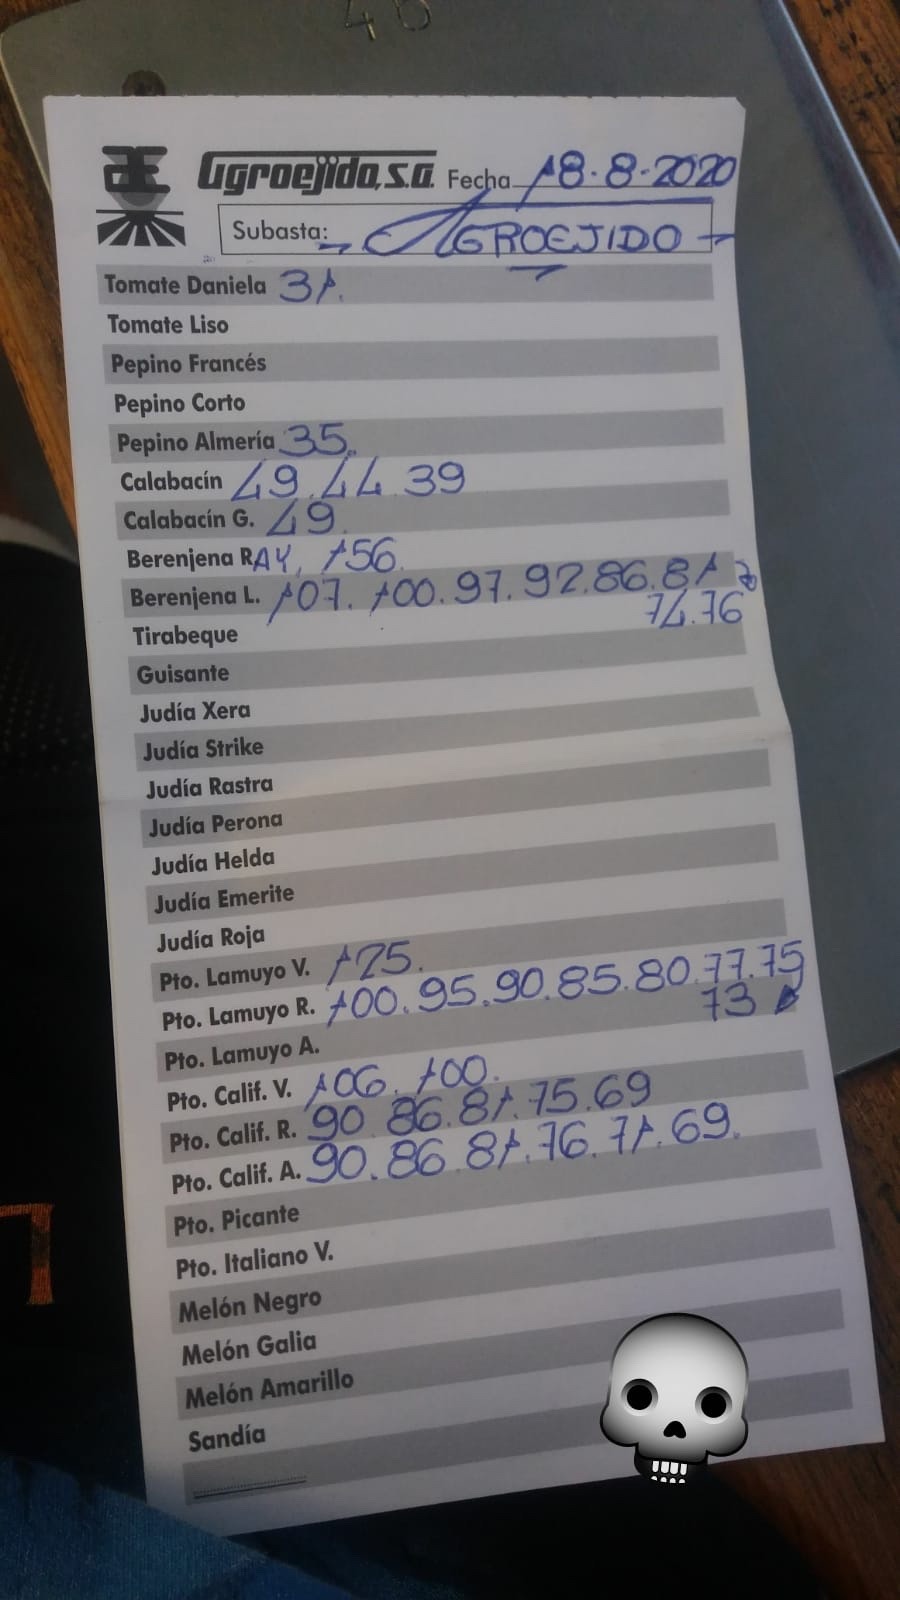 46
Agroejido, s.a. Fecha 18-8-2020
Subasta: AGROEJIDO
Tomate Daniela 31.
Tomate Liso
Pepino Francés
Pepino Corto
Pepino Almería 35.
Calabacín 49. 44 39
Calabacín G. 49
Berenjena RAY, 156.
Berenjena L. 107. 100. 97. 92. 86. 81
74. 76
Tirabeque
Guisante
Judía Xera
Judía Strike
Judía Rastra
Judía Perona
Judía Helda
Judía Emerite
Judía Roja
Pto. Lamuyo V. 125.
Pto. Lamuyo R. 100. 95. 90. 85. 80. 77. 75
73
Pto. Lamuyo A.
Pto. Calif. V. 106. 100.
Pto. Calif. R. 90 86. 81. 75. 69
Pto. Calif. A. 90. 86 81. 76. 71. 69.
Pto. Picante
Pto. Italiano V.
Melón Negro
Melón Galia
Melón Amarillo
Sandía